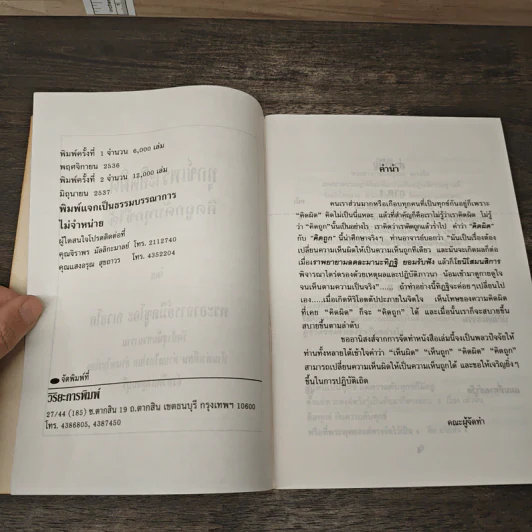 พิมพ์ครั้งที่ 1 จำนวน 6,000 เล่ม
พฤศจิกายน 2536
พิมพ์ครั้งที่ 2 จำนวน 12,000 เล่ม
มิถุนายน 2537
พิมพ์แจกเป็นธรรมบรรณาการ
ไม่จำหน่าย
ผู้ใดสนใจโปรดติดต่อที่
คุณจิราพร มัลลิกะมาลย์ โทร. 2112740
คุณแสงอรุณ สุขถาวร โทร. 4352204
จัดพิมพ์ที่
วิริยะการพิมพ์
27/44 (185) ซ.ตากสิน 19 ถ.ตากสิน เขตธนบุรี กรุงเทพฯ 10600
โทร. 4386805, 4387450
คำนำ
คนเราส่วนมากหรือเกือบทุกคนที่เป็นทุกข์กันอยู่ก็เพราะ
"คิดผิด" คิดไม่เป็นนี่แหละ แล้วที่สำคัญก็คือเราไม่รู้ว่าเราคิดผิด ไม่รู้
ว่า "คิดถูก"นั้นเป็นอย่างไร เราคิดว่าเราคิดถูกแล้วร่ำไป คำว่า "คิดผิด"
กับ "คิดถูก" นี้น่าศึกษาจริงๆ ท่านอาจารย์บอกว่า "มันเป็นเรื่องต้อง
เปลี่ยนความเห็นผิดให้เป็นความเห็นถูกทีเดียว และมันจะเกิดผลก็ต่อ
เมื่อเราพยายามลดละมานะทิฏฐิ ยอมรับฟัง แล้วก็โยนิโสมนสิการ
พิจารณาไตร่ตรองด้วยเหตุผลและปฏิบัติภาวนา น้อมเข้ามาดูกายดูใจ
จนเห็นตามความเป็นจริง"..... ถ้าทำอย่างนี้ทิฏฐิจะค่อยๆเปลี่ยนไป
เอง.....เมื่อเกิดหิริโอตตัปปะภายในจิตใจ เห็นโทษของความคิดผิด
ที่เคย "คิดผิด" ก็จะ "คิดถูก" ได้ และเมื่อนั้นเราก็จะสบายขึ้น
สบายขึ้นตามลำดับ
ขออานิสงส์จากการจัดทำหนังสือเล่มนี้จงเป็นพลวปัจจัยให้
ท่านทั้งหลายได้เข้าใจคำว่า "เห็นผิด" "เห็นถูก" "คิดผิด" "คิดถูก"
สามารถเปลี่ยนความเห็นผิดให้เป็นความเห็นถูกได้ และขอให้เจริญยิ่งๆ
ขึ้นในการปฏิบัติเถิด
คณะผู้จัดทำ